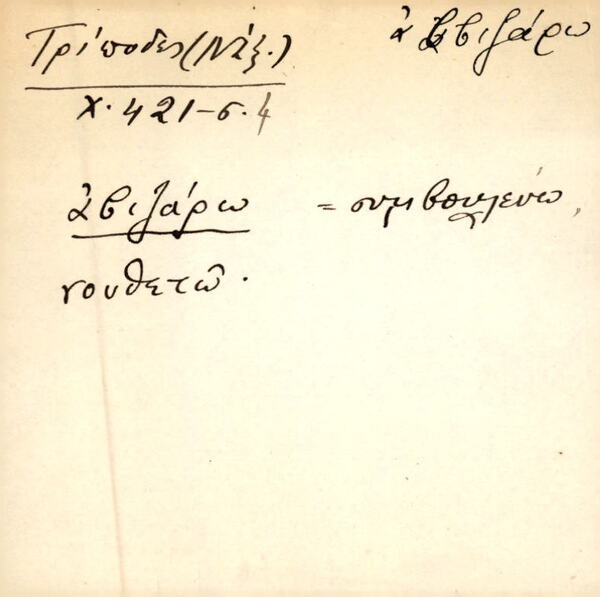 Τρίποδες (Νάξ.)
ἀβιζάρω
Χ. 421-σ. 4
ἀβιζάρω = συμβουλεύω,
νουθετῶ.